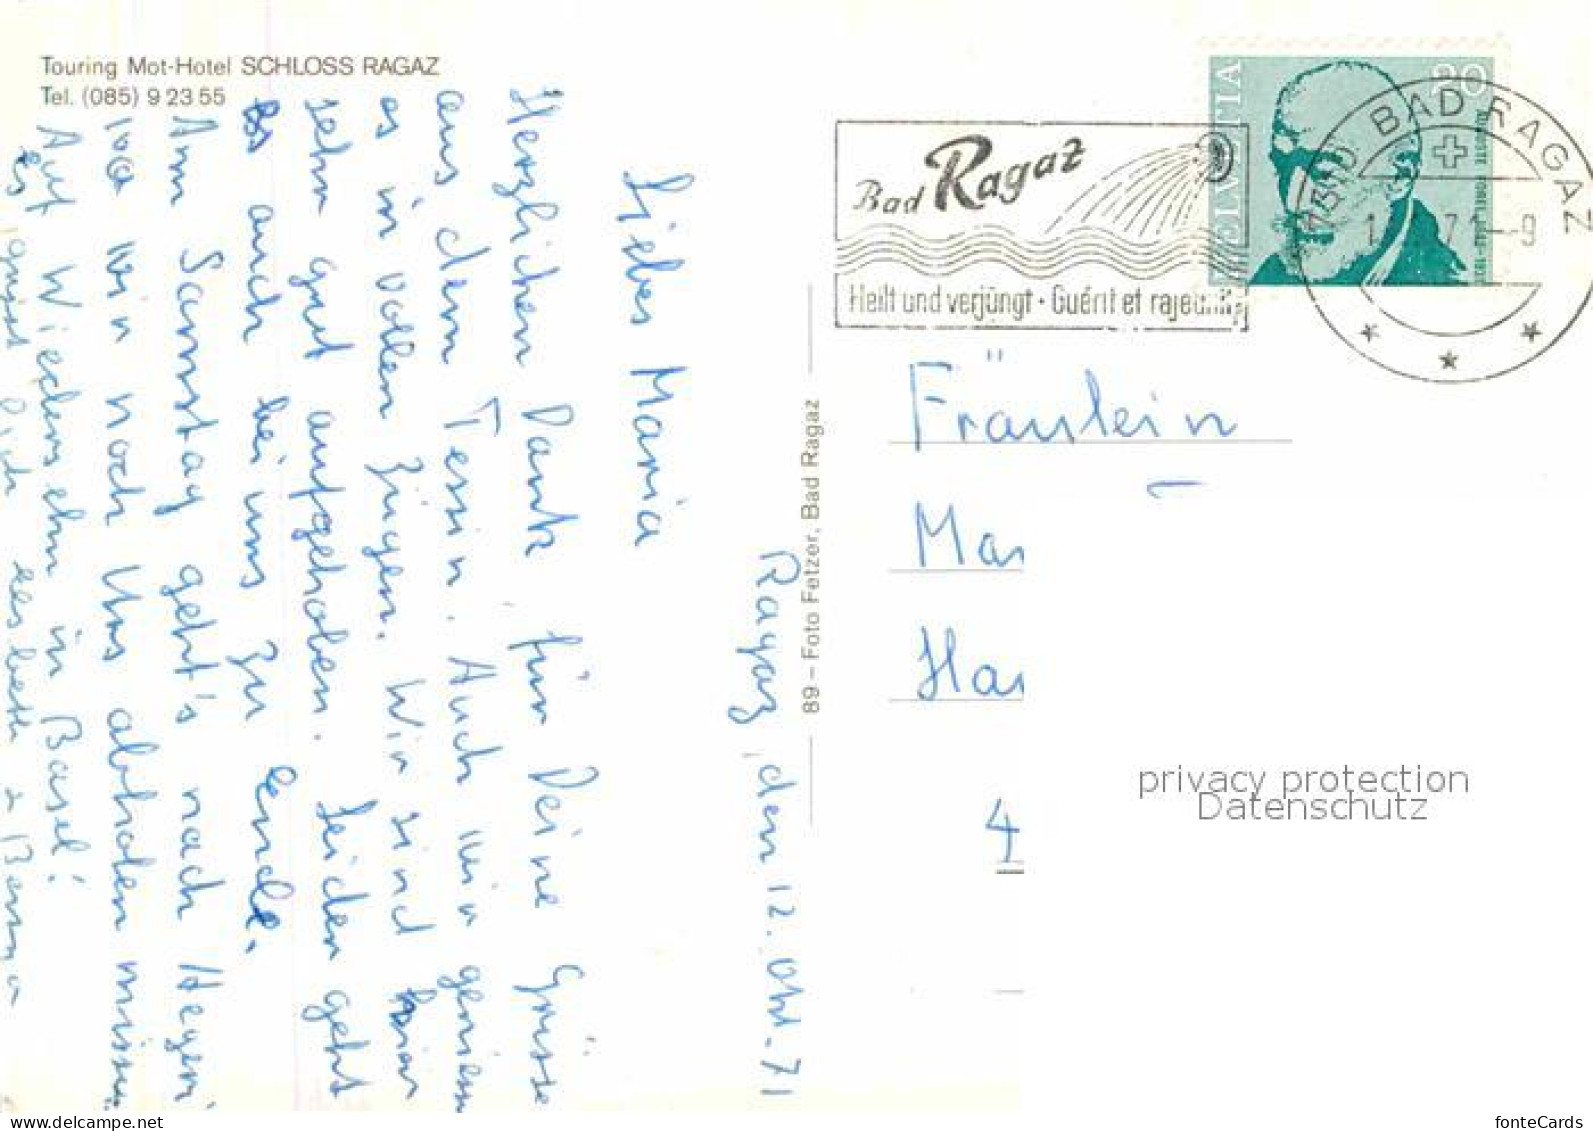 Touring Mot-Hotel SCHLOSS RAGAZ
Tel. (085) 9 23 55
Ragaz, den 12. Okt. 71
Liebes Maria
Herzlichen Dank für Deine Grüsse
aus dem Tessin. Auch wir geniessen
es in vollen Zügen. Wir sind hier
sehr gut aufgehoben. Leider geht
es auch bei uns zu Ende.
Am Samstag geht's nach
wo wir noch Urs abholen müssen
Auf Wiedersehn in Basel!
Es grüsst Dich
89 – Foto Fetzer, Bad Ragaz
Bad Ragaz
Heilt und verjüngt · Guérit et rajeunit
HELVETIA
20
AUGUSTE FOREL 1848-1931
BAD RAGAZ
71–9
Fräulein
Mar
Han
4
privacy protection
Datenschutz
www.ansichtskartenversand.com
fonteCards